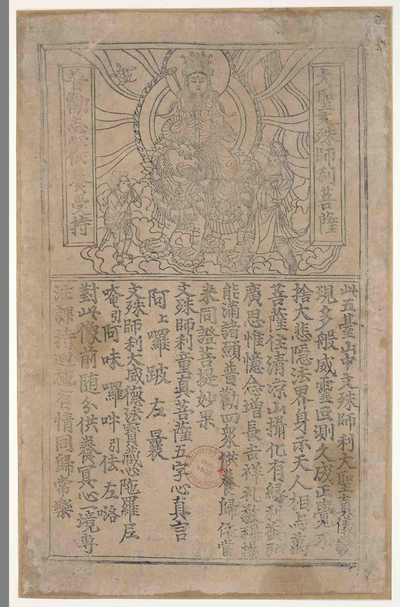 大聖文殊師利菩薩
普勸志心供養受持
此五臺山中文殊師利大聖真儀變
現多般威靈叵測久成正覺不
捨大悲隱法界身示天人相與萬
菩薩住清涼山攝化有緣利益弘
廣思惟憶念增長吉祥禮敬稱揚
能滿諸願普勸四眾供養歸依當
來同證菩提妙果
文殊師利童真菩薩五字心真言
阿上囉跛左曩
文殊師利大威德法寶藏心陀羅尼
唵引阿味囉吽引佉左咯
對此像前隨分供養冥心一境專
注課持迴施有情同歸常樂